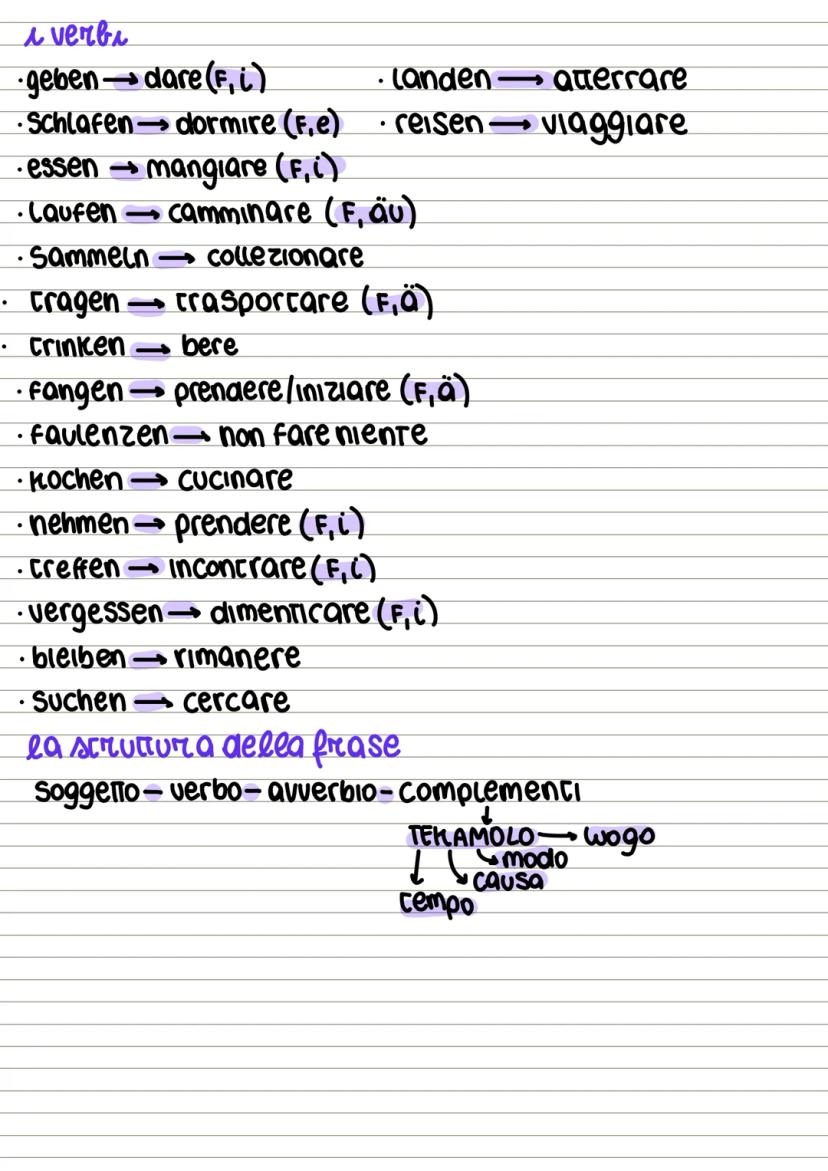 i verbi
·geben → dare (F, i)
·schlafen → dormire (F, e)
·essen → mangiare (F, i)
·laufen → camminare (F, äu)
·sammeln → collezionare
· tragen → trasportare (F, ä)
· trinken → bere
·fangen → prendere/iniziare (F, ä)
·faulenzen → non fare niente
·kochen → cucinare
·nehmen → prendere (F, i)
·treffen → incontrare (F, i)
·vergessen → dimenticare (F, i)
·bleiben → rimanere
·suchen → cercare
·landen → atterrare
·reisen → viaggiare
la struttura della frase
soggetto - verbo - avverbio - complementi
↓
TEKAMOLO → wogo
modo
causa
tempo